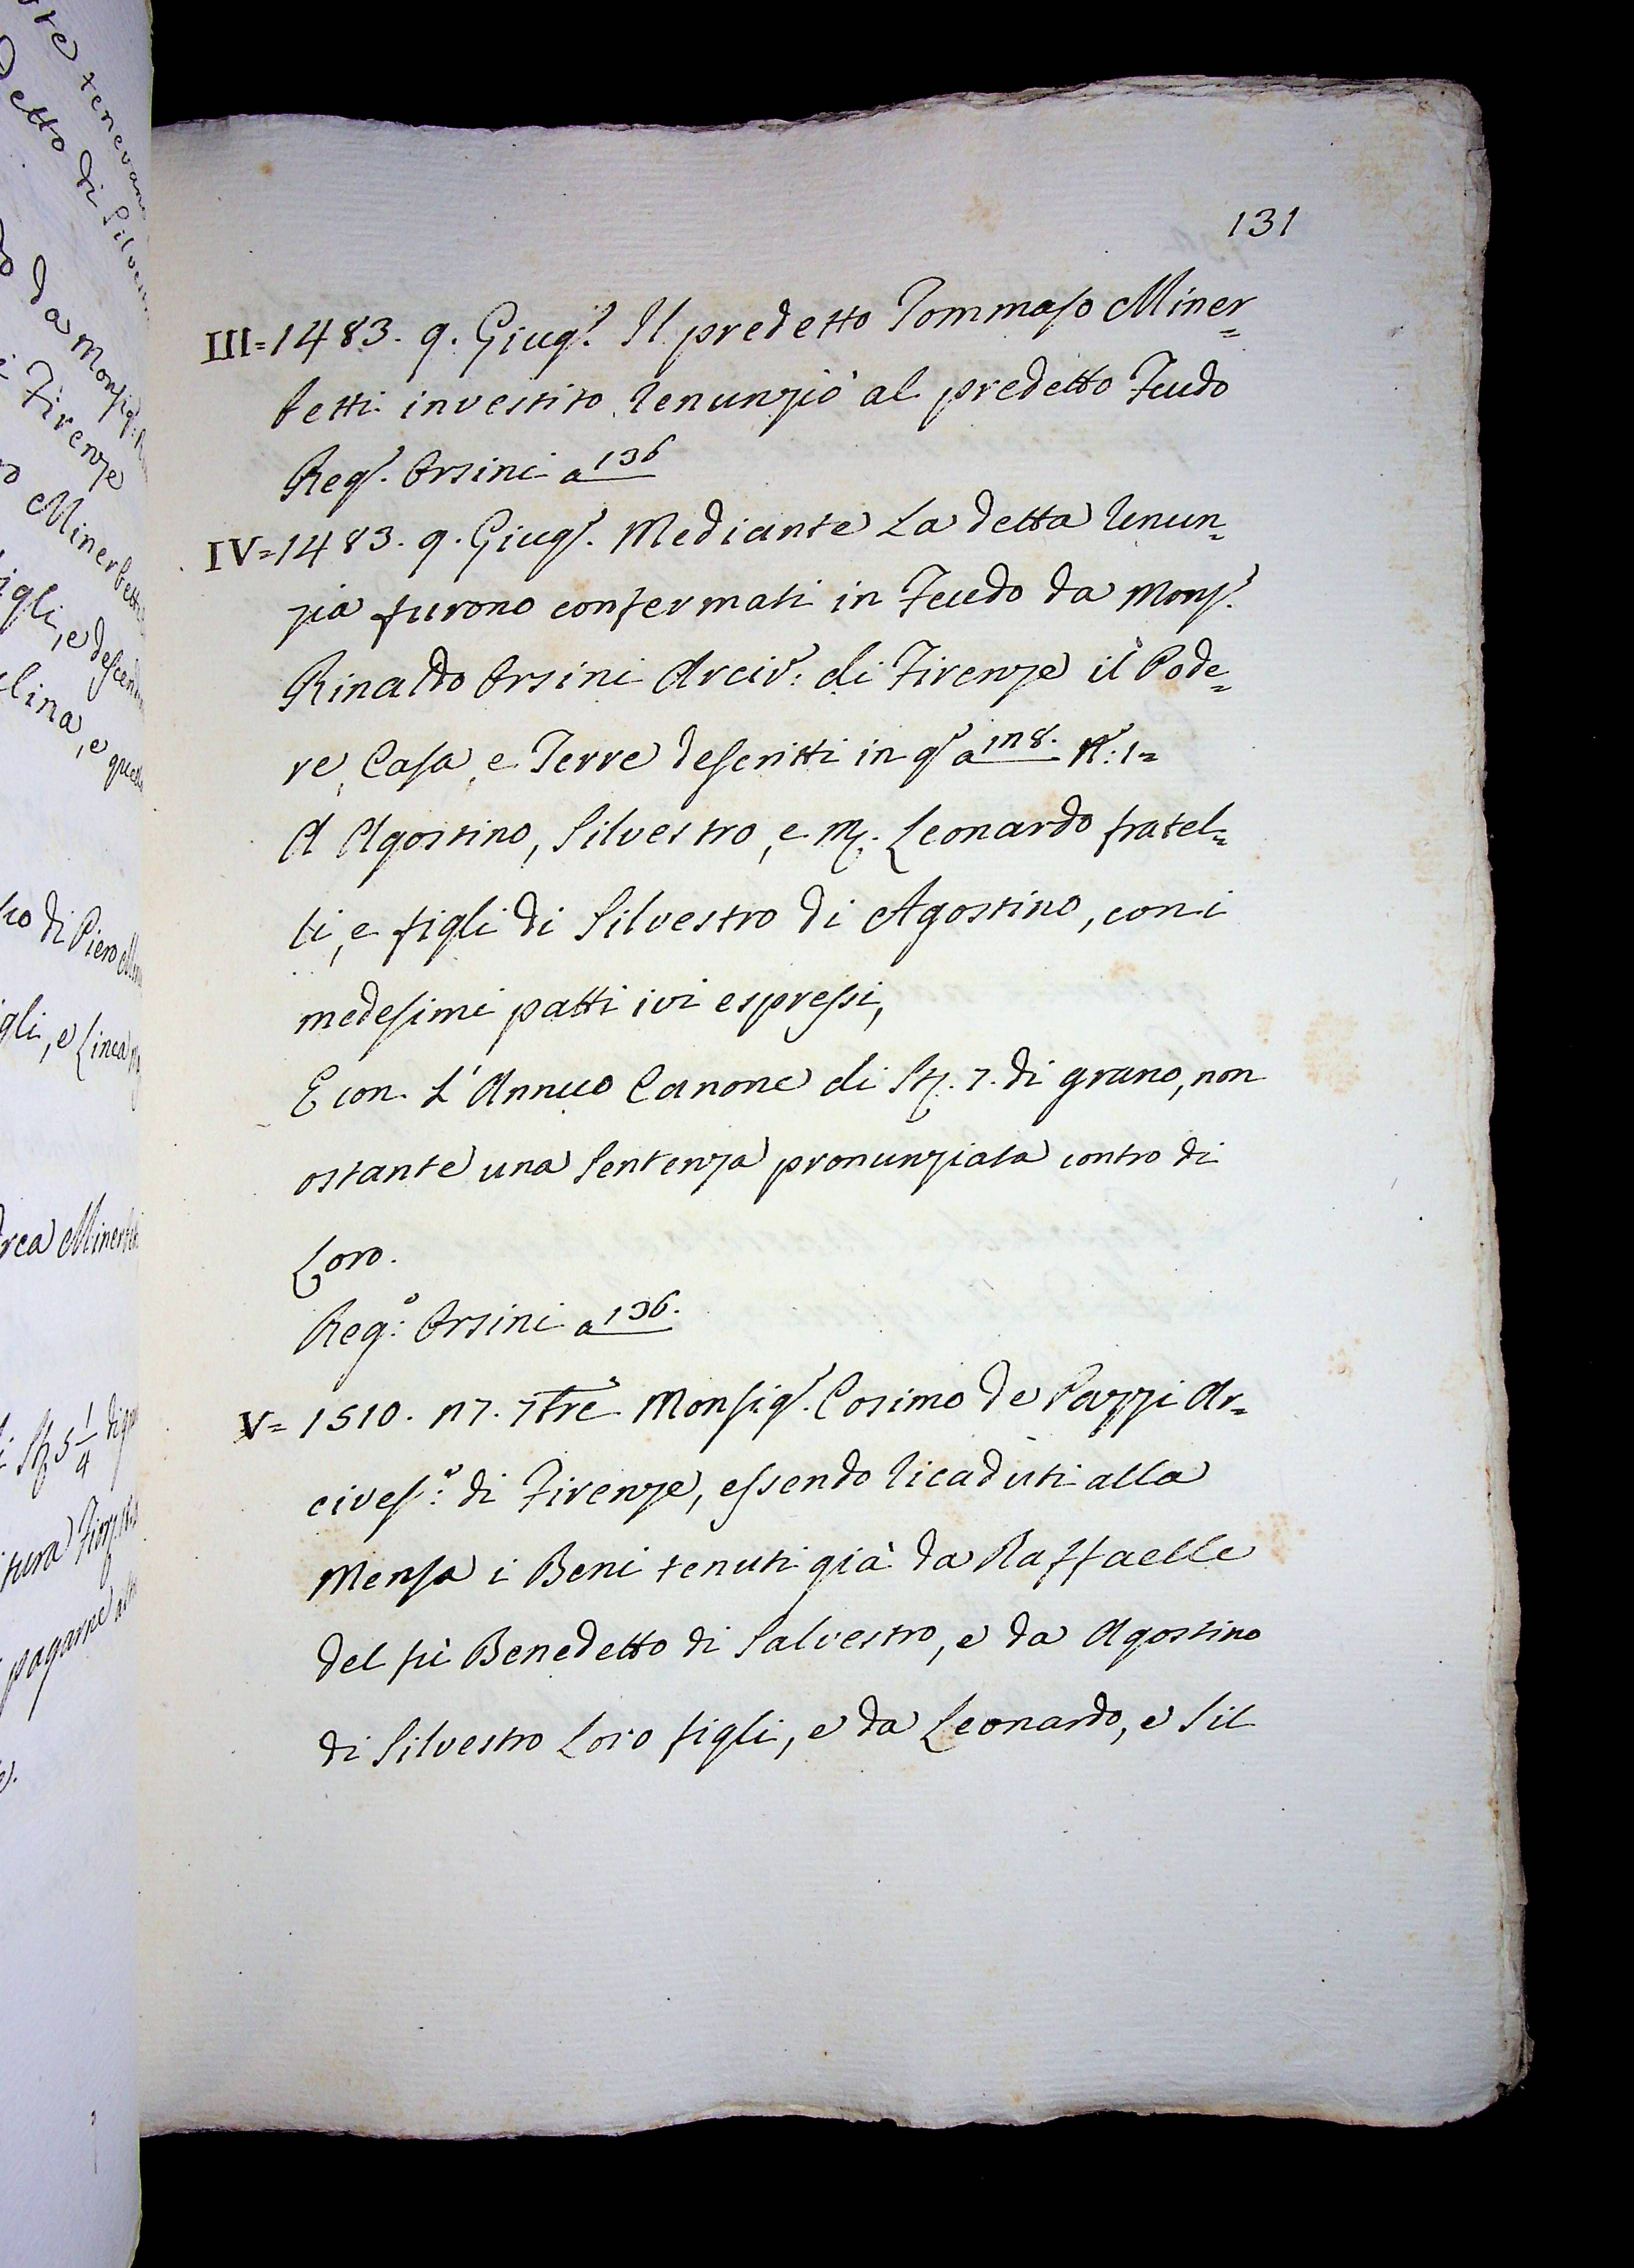 131
III=1483. 9. Giugº. Il predetto Tommaso Miner=
betti investito renunziò al predetto Feudo
Regº. Orsini a 136
IV=1483. 9. Giugº. Mediante La detta renun=
zia furono confermati in Feudo da Monsʳ.
Rinaldo Orsini Arcivº: di Firenze il Pode=
re, Casa, e Terre descritti in qº a 128. Nº: 1=
A Agostino, Silvestro, e M. Leonardo fratel=
li, e figli di Silvestro di Agostino, con i
medesimi patti ivi espressi,
E con L'Annuo Canone di St. 7. di grano, non
ostante una Sentenza pronunziata contro di
Loro.
Regº: Orsini a 136.
V= 1510. 27. 7bre Monsigʳ. Cosimo de Pazzi Ar=
civesº: di Firenze, essendo ricaduti alla
Mensa i Beni tenuti già da Raffaelle
del fù Benedetto di Salvestro, e da Agostino
di Silvestro Loro figli, e da Leonardo, e Sil
Detto di
da Monsig
Firenze
Minerbetti
igli, e descen
lina, e quell
di Piero
gli, e Linea
rea Minerbet
St 5 1/4 di
tura
pagarne